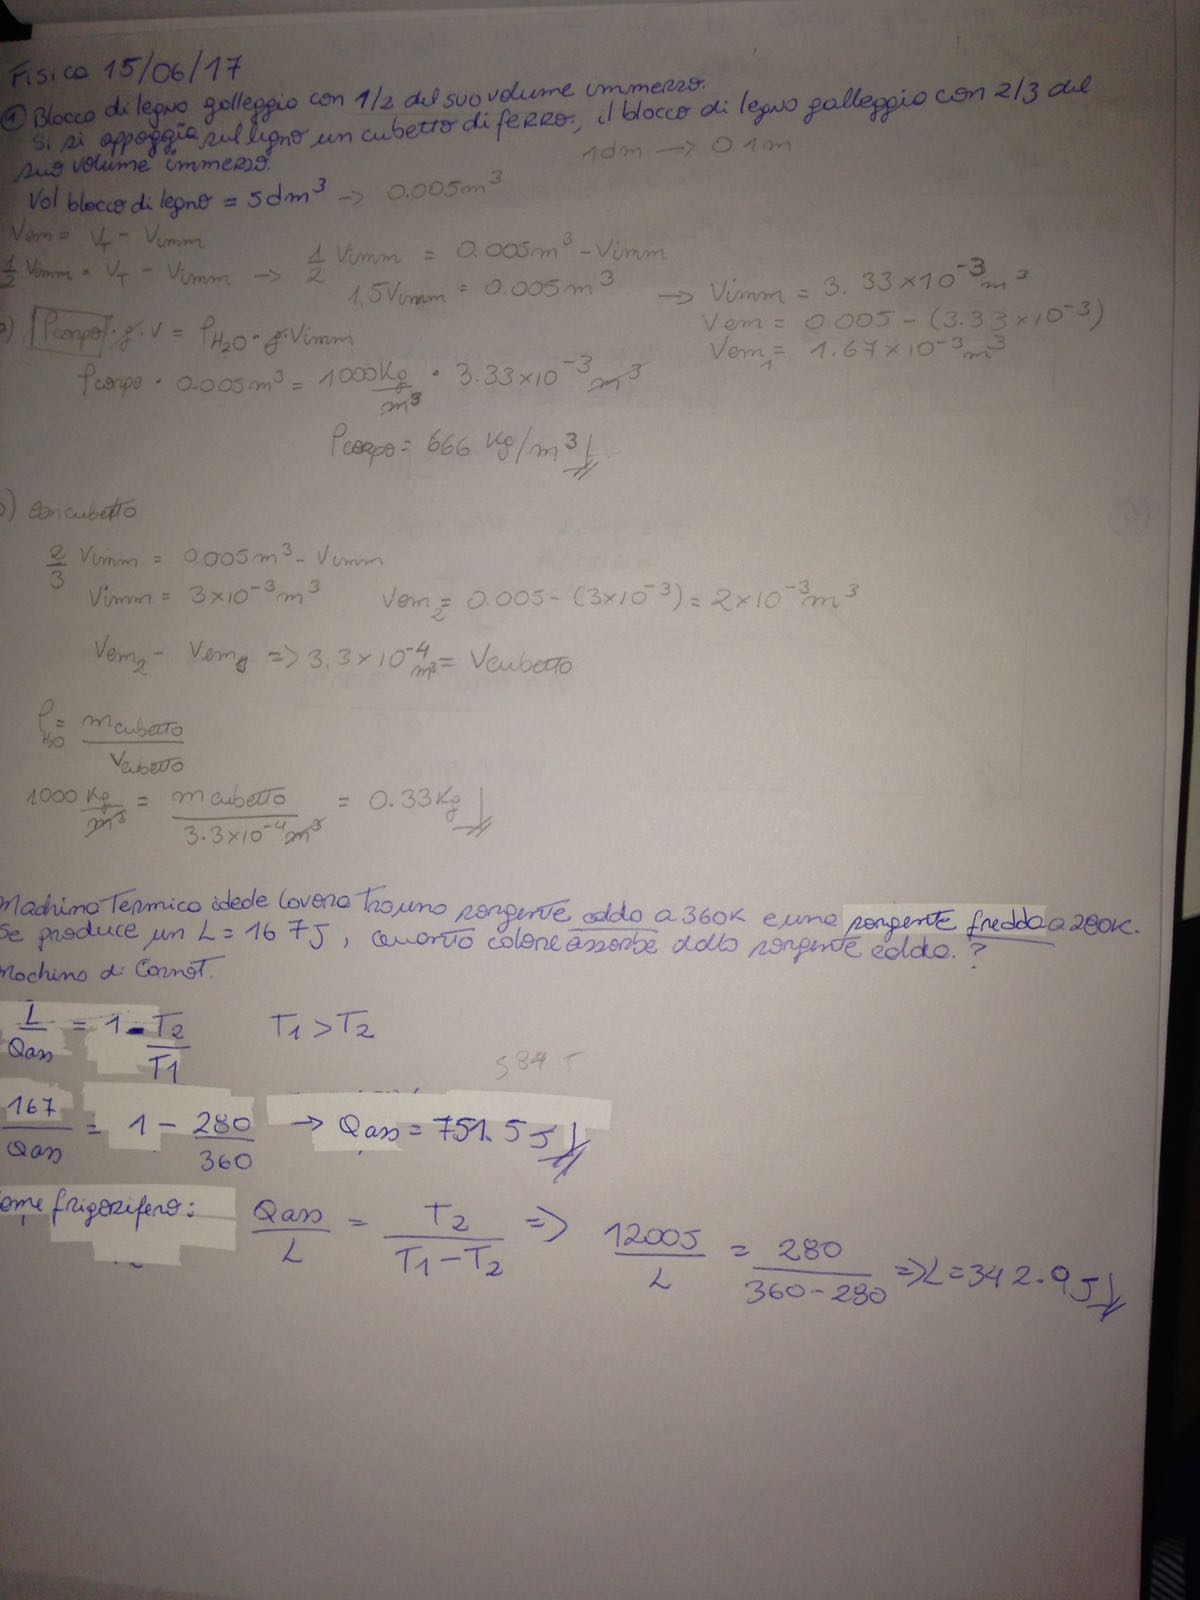 Fisica 15/06/17
① Blocco di legno galleggia con 1/2 del suo volume immerso.
Si si appoggia sul legno un cubetto di ferro, il blocco di legno galleggia con 2/3 del
suo volume immerso.
1dm → 0.1m
Vol blocco di legno = 5dm³ → 0.005m³
Vem = VT - Vimm
1/2 Vimm = VT - Vimm → 1/2 Vimm = 0.005m³ - Vimm
1,5Vimm = 0.005m³ → Vimm = 3.33×10⁻³m³
Vem = 0.005 - (3.33×10⁻³)
Vem₁ = 1.67×10⁻³m³
) ρcorpo · g · V = ρH₂O · g · Vimm
ρcorpo · 0.005m³ = 1000Kg/m³ · 3.33×10⁻³m³
ρcorpo = 666 Kg/m³
) con cubetto
2/3 Vimm = 0.005m³ - Vimm
Vimm = 3×10⁻³m³ Vem₂ = 0.005 - (3×10⁻³) = 2×10⁻³m³
Vem₂ - Vem₁ => 3.3×10⁻⁴m³ = Vcubetto
ρH₂O = mcubetto/Vcubetto
1000 Kg/m³ = mcubetto/3.3×10⁻⁴m³ = 0.33Kg
Macchina Termica ideale lavora tra una sorgente calda a 360K e una sorgente fredda a 280K.
Se produce un L = 167J, quanto calore assorbe dalla sorgente calda.?
Machina di Carnot.
L/Qass = 1 - T2/T1 T1 > T2
584 J
167/Qass = 1 - 280/360 → Qass = 751.5J
ome frigorifero: Qass/L = T2/(T1-T2) => 1200J/L = 280/(360-280) => L = 342.9J